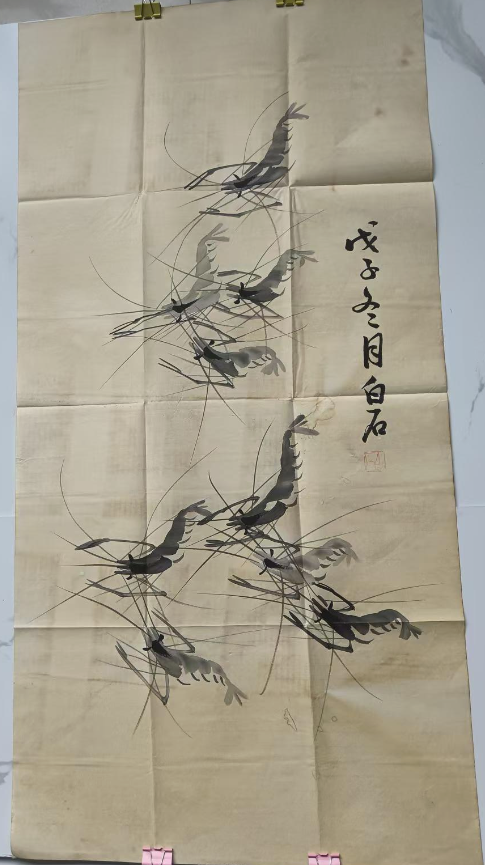 戊子冬月白石